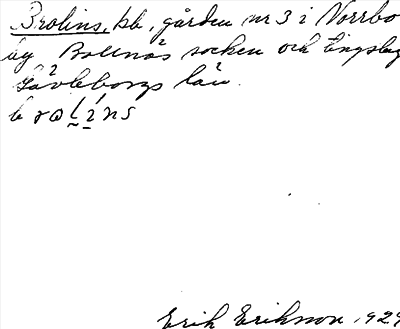 Brolins, bb, gården nr 3 i Norrbo
by Bollnäs socken och tingslag
Gävleborgs län.
brolins
Erik Eriksson, 1929